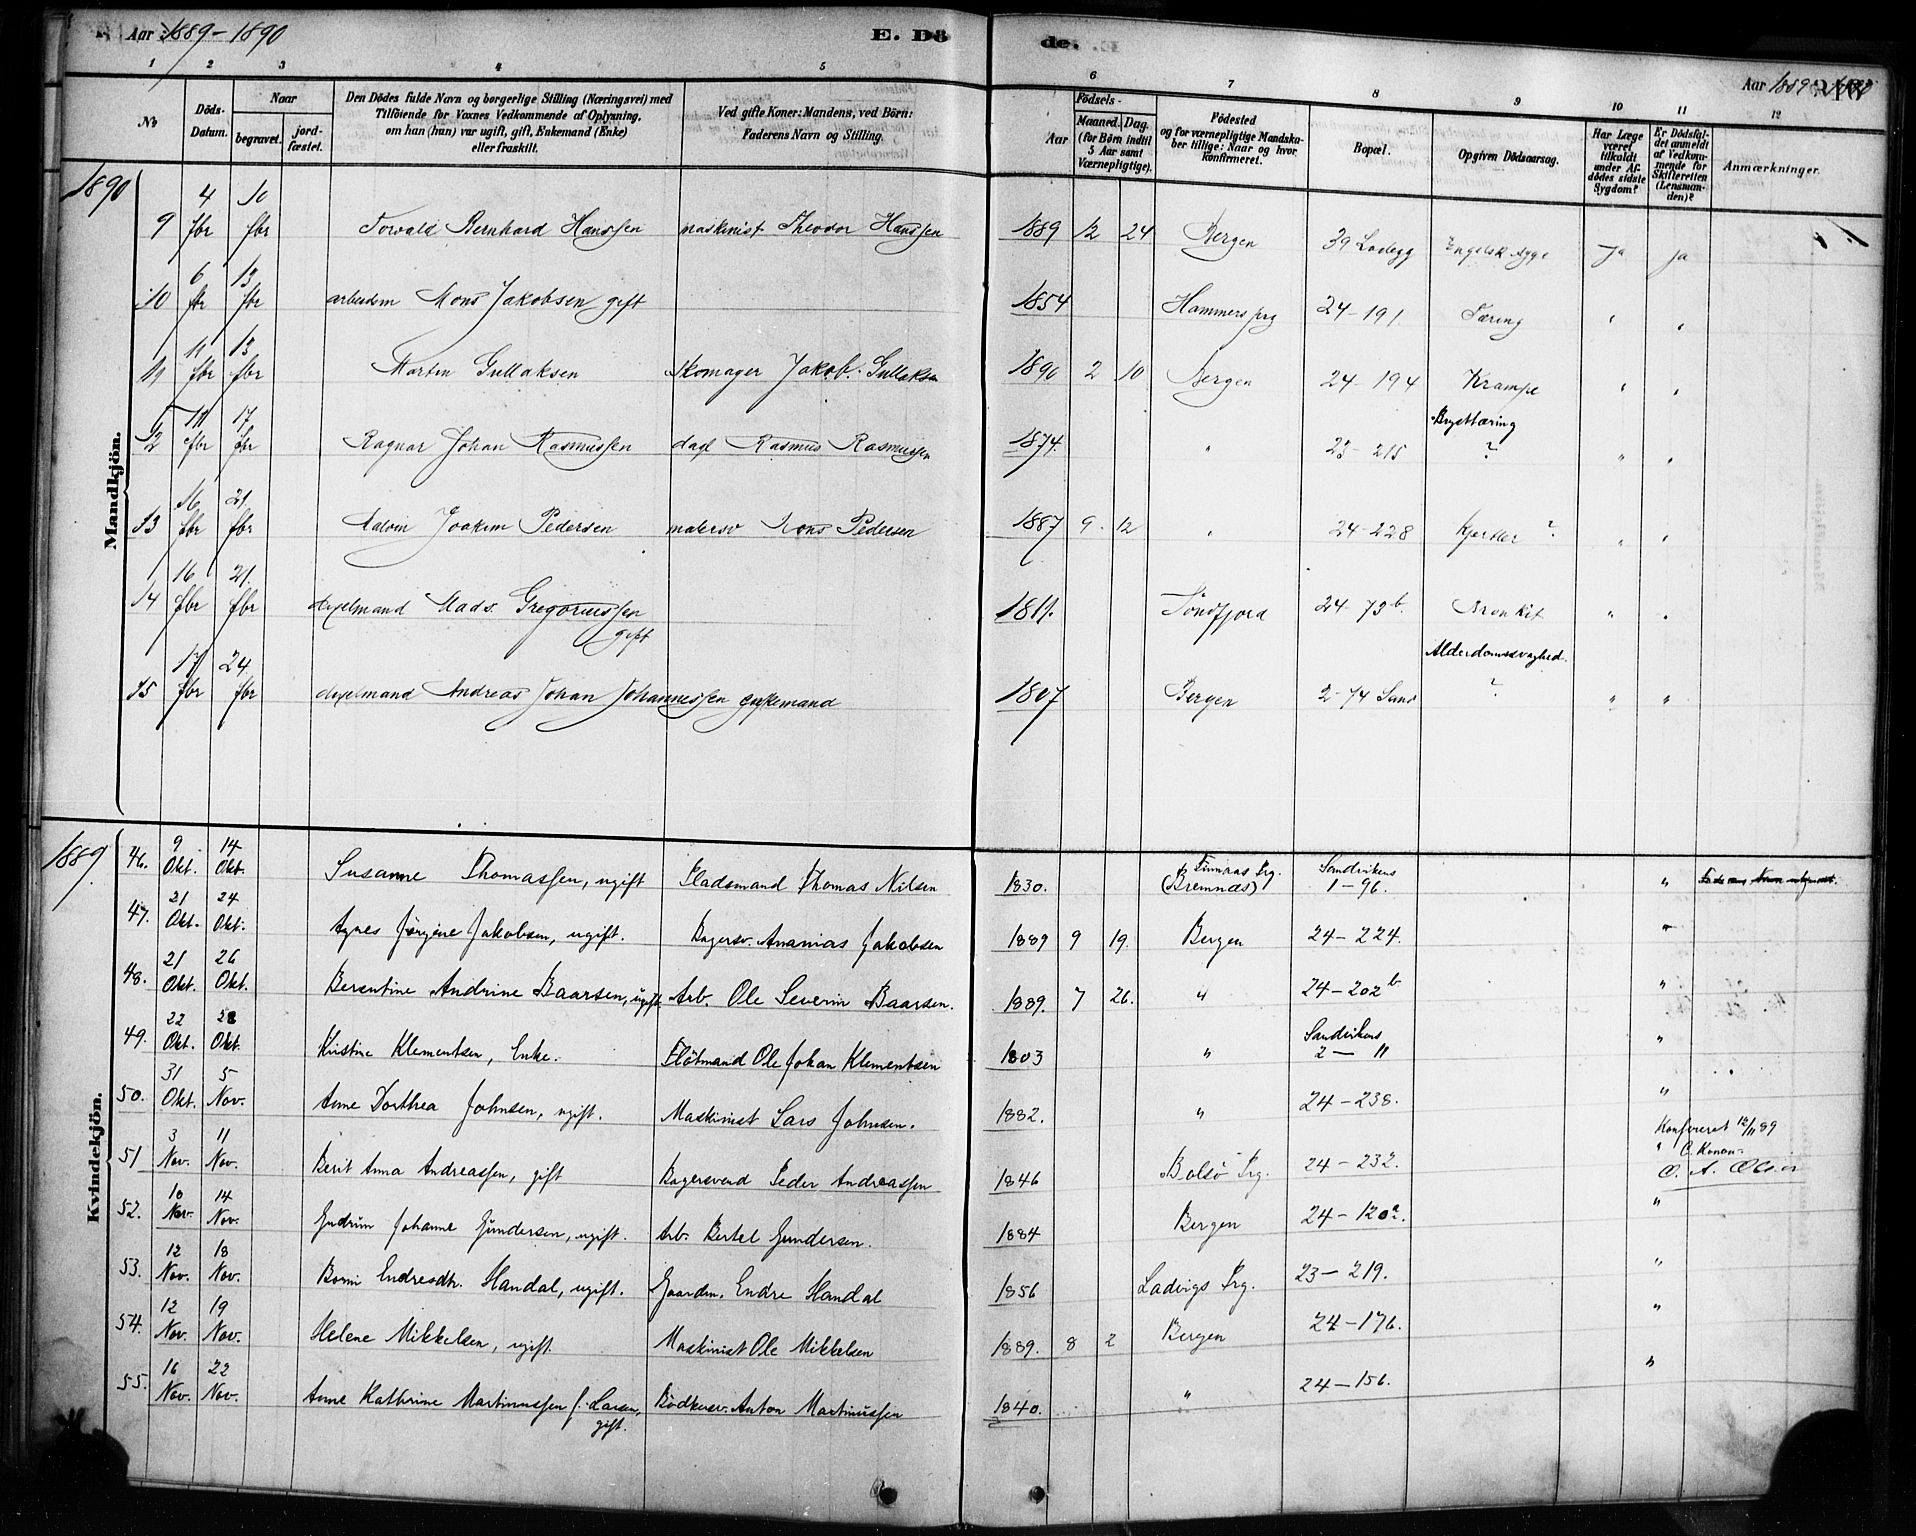 Aar 1889-1890
E. Dö
de.
Aar 1889-1890
1 2 3 4 5 6 7 8 9 10 11 12
No
Döds-Datum.
Naar
begravet.
jord-fæstet.
Den Dödes fulde Navn og borgerlige Stilling (Næringsvei) med
Tilföiende for Voxnes Vedkommende af Oplysning,
om han (hun) var ugift, gift, Enkemand (Enke)
eller fraskilt.
Ved gifte Koner: Mandens, ved Börn:
Faderens Navn og Stilling.
Födsels-
Aar
Maaned. Dag.
(for Börn indtil
5 Aar samt
Værnepligtige).
Födested
og for værnepligtige Mandska-
ber tillige: Naar og hvor
konfirmeret.
Bopæl.
Opgiven Dödsaarsag.
Har Læge
været
tilkaldt
under Af-
dödes sidste
Sygdom?
Er Dödsfal-
det anmeldt
af Vedkom-
mende for
Skifteretten
(Lensman-
den)?
Anmærkninger.
1890
Mandkjön.
9 4 fbr 10 fbr Torvald Bernhard Hanssen maskinist Theodor Hanssen 1889 12 24 Bergen 39 Engelsk syge Ja ja
10 6 fbr 13 fbr arbeidsm Mons Jakobsen gift 1854 Hammers prg 24-191 Tæring " "
11 11 fbr 13 fbr Martin Gullaksen skomager Jakob Gullaksen 1890 2 10 Bergen 24-194 Krampe " "
12 11 fbr 17 fbr Ragnar Johan Rasmussen dagl Rasmus Rasmussen 1874 " 23-215 Brysttæring ? " "
13 16 fbr 21 fbr Joakim Pedersen malersv Mons Pedersen 1887 9 12 " 24-228 Kjertler ? " "
14 16 fbr 21 fbr Mads Gregoriussen gift Söndfjord 24-73b Bronkit " "
15 17 fbr 24 fbr Andreas Johan Johannessen enkemand 1807 Bergen 2-74 Sand Alderdomssvaghed ? " "
1889
Kvindekjön.
46. 9 Okt. 14 Okt. Susanne Thomassen, ugift Pladsmand Thomas Nilsen 1830. Finnaas Prg. (Bremnæs) Sandvikens 1-96. "
47. 21 Okt. 24 Okt. Agnes Jørgine Jakobsen, ugift. Bagersv. Ananias Jakobsen 1889 9 19. Bergen 24-224. "
48. 21 Okt. 26 Okt. Berentine Andrine Baarsen, ugift Arb. Ole Severin Baarsen. 1889. 7 26. " 24-202b "
49. 22 Okt. 28 Okt. Kristine Klementsen, Enke. Flötmand Ole Johan Klementsen 1803 " Sandvikens 2-11 "
50. 31 Okt. 5 Nov. Anne Dorthea Johnsen, ugift. Maskinist Lars Johnsen. 1882. " 24-238. "
Konfereret 12/11 89
51 3 Nov. 11 Nov. Berit Anna Andreassen, gift Bagersvend Peder Andreassen 1846 Bolsø Prg. 24-232. "
O. A. Olsen
52. 10 Nov. 14 Nov. Gudrun Johanne Gundersen, ugift. Arb. Bertel Gundersen. 1884 Bergen 24-120a. "
53. 12 Nov. 18 Nov. Endresdtr. Handal, ugift. Gaardm. Endre Handal 1856 Ladvigs Prg. 23-219. "
54. 12 Nov. 19 Nov. Helene Mikkelsen, ugift. Maskinist Ole Mikkelsen 1889. 8 2 Bergen 24-176. "
55. 16 Nov. 22 Nov. Anne Kathrine Martinussen f. Larsen, gift. Bödkersv. Anton Martinussen 1840. " 24-156. "